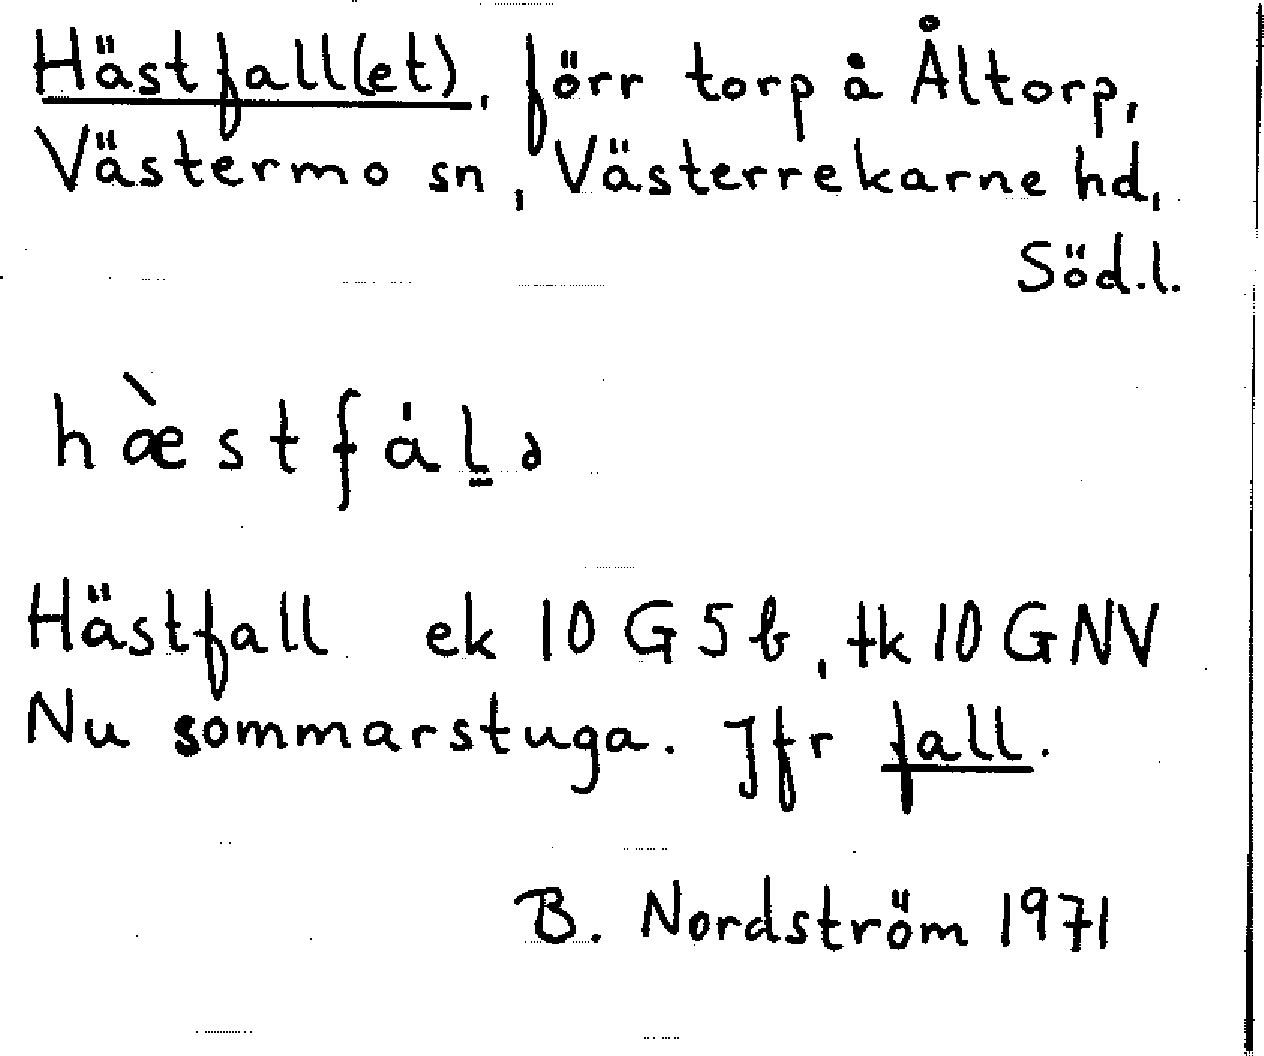 Hästfall(et), förr torp å Åltorp,
Västermo sn, Västerrekarne hd,
Söd.l.
hæ̀stfȧl̲ə
Hästfall ek 10 G 5 b, tk 10 G NV
Nu sommarstuga. Jfr fall.
B. Nordström 1971